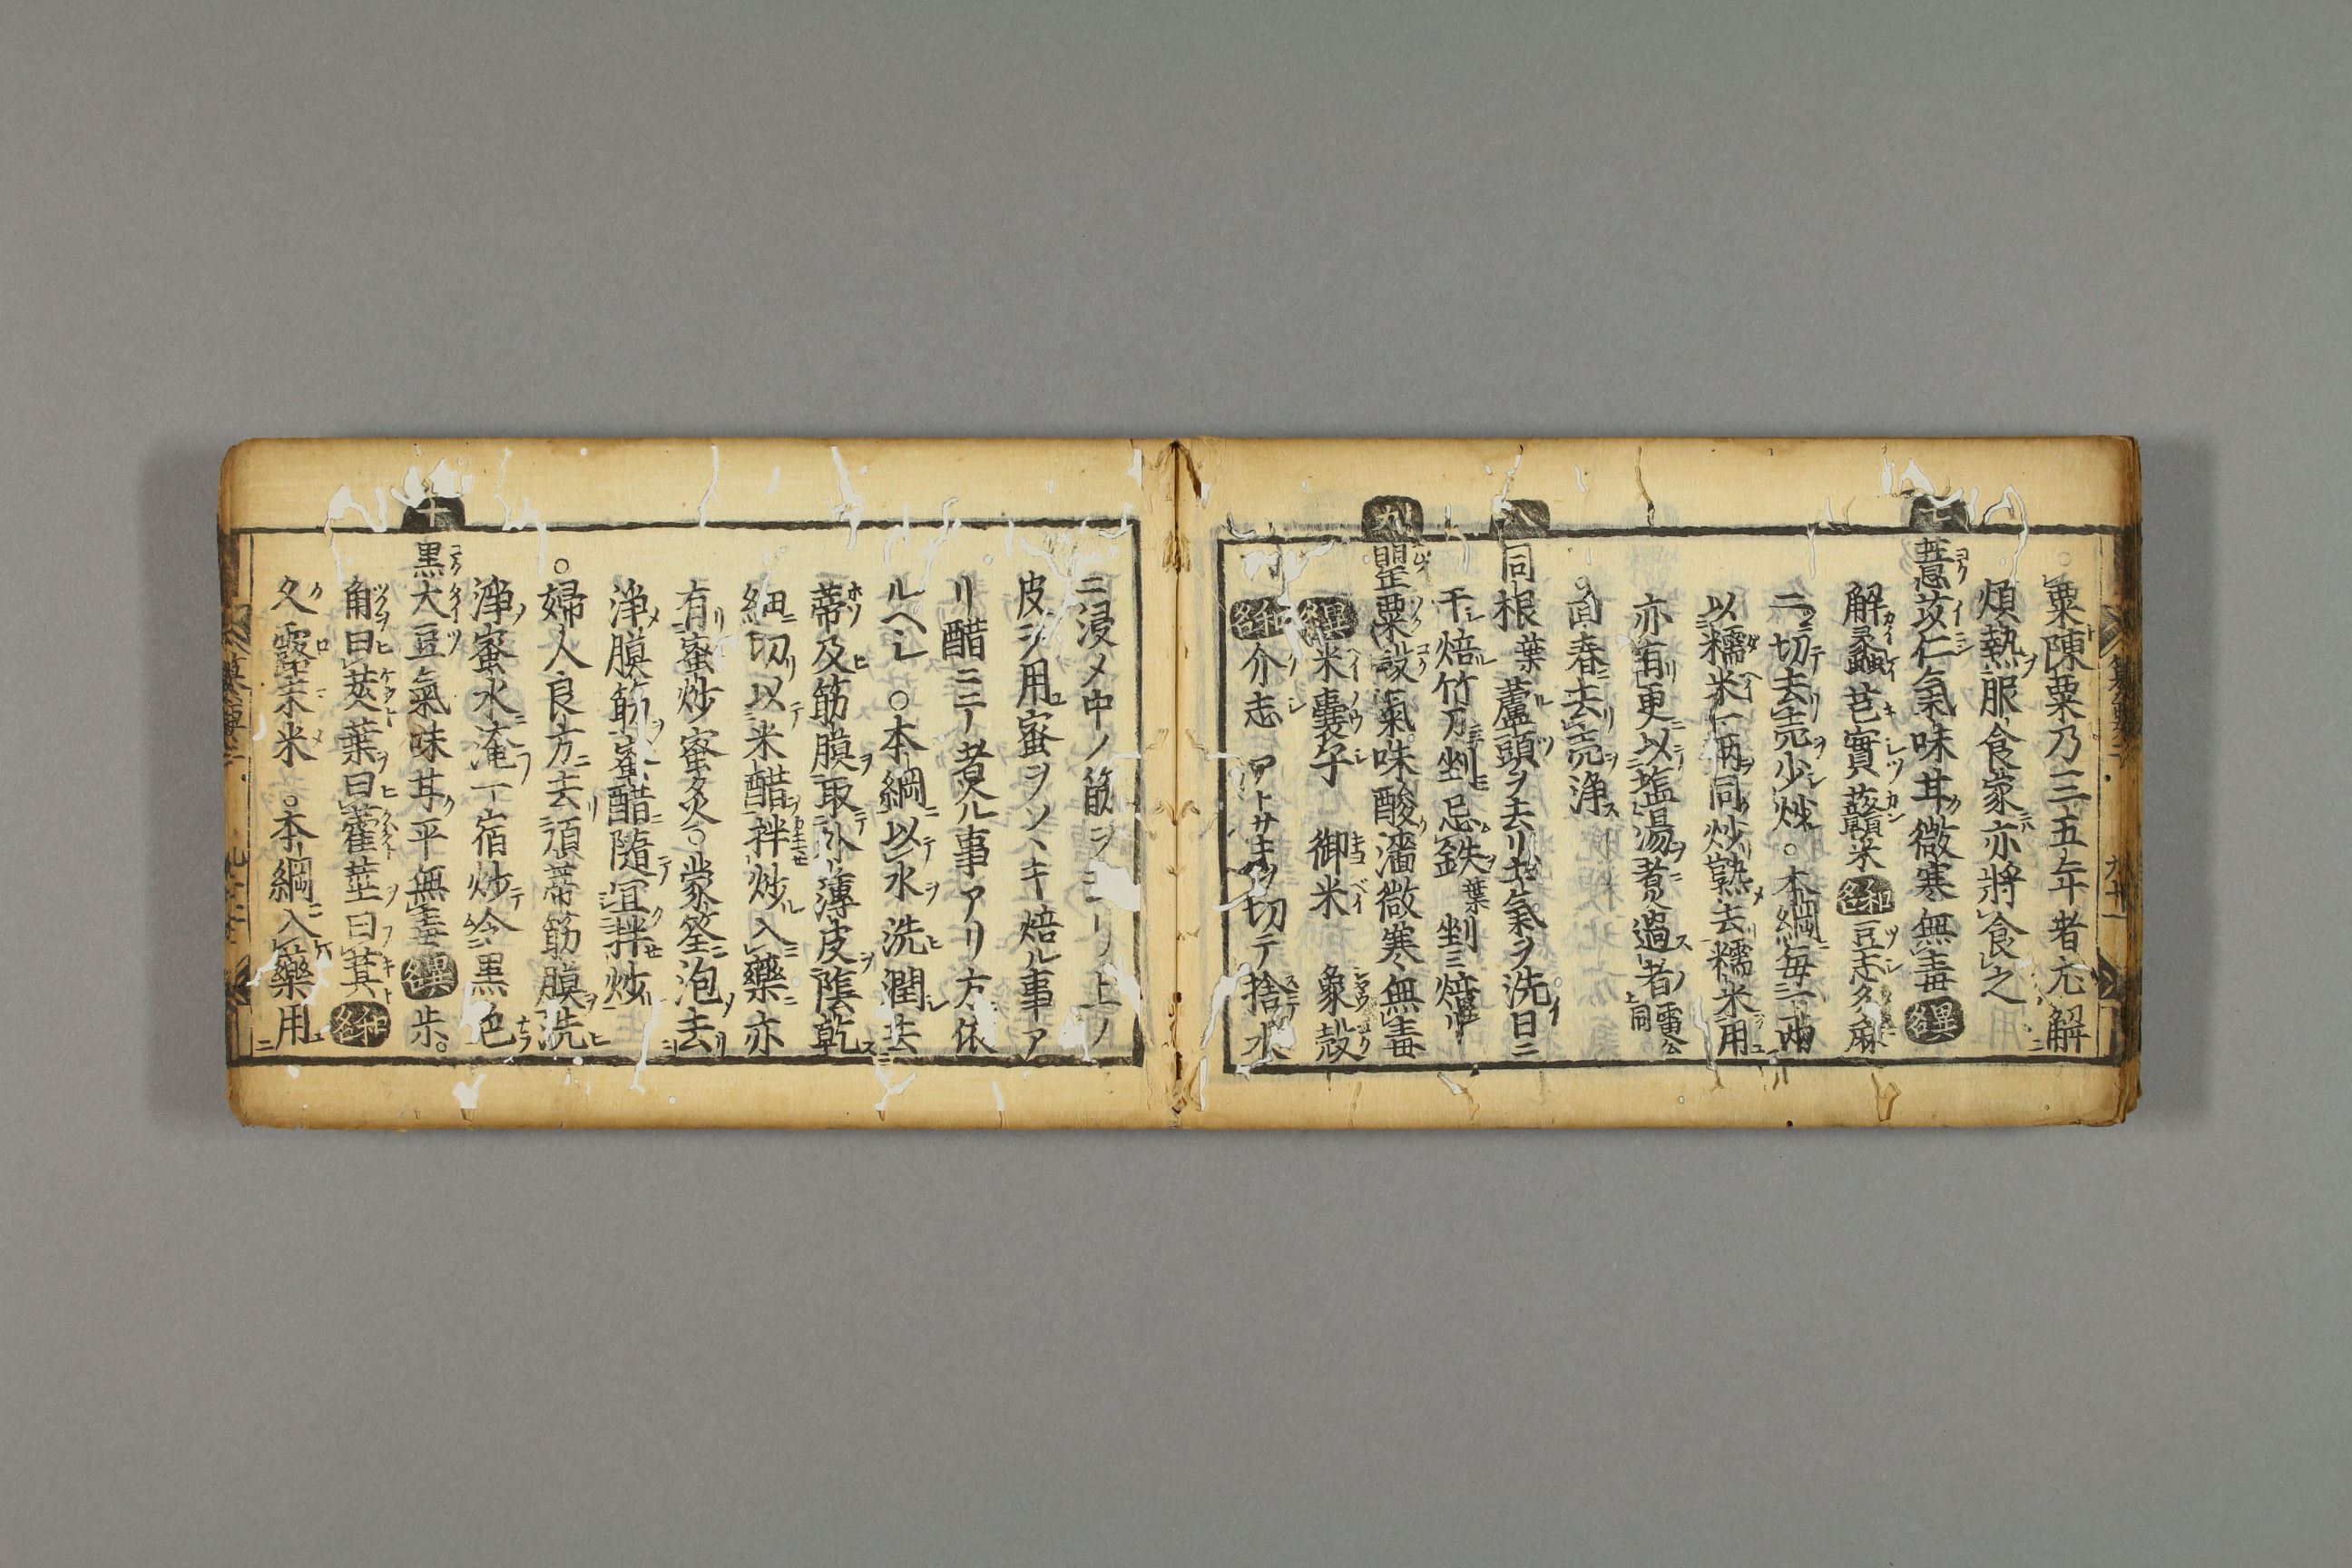 粟陳粟乃三五年者尤解
煩熱服食家亦將食之
七
薏苡仁氣味甘微寒無毒 異名
解蠡 芑實 贛米 和名 豆志多麻
二切去売少炒○本綱毎一兩
以糯米一兩同炒熟去糯米用
亦有更以塩湯煮過者 雷公同
○頁舂去売浄
八
同根葉 蘆頭ヲ去リ土氣ヲ洗日ニ
干焙竹刀剉忌鉄 葉剉焙
九
罌粟殻氣味酸濇微寒無毒
異名 米嚢子 御米 象殻
和名 介志 アトサキヲ切テ捨水
ニ浸メ中ノ筋 上ノ
皮 用蜜ヲソヽキ焙ル事ア
リ醋ニテ煮ル事アリ方ニ依
ルヘレ○本綱以水洗潤去
蒂及筋膜取外薄皮陰乾
細切以米醋拌炒入藥亦
有蜜炒蜜炙○蒙筌泡去
浄膜筋蜜醋隨宜拌炒
○婦人良方去頂蒂筋膜洗
浄蜜水淹一宿炒令黒色
十
黒大豆氣味甘平無毒 異名 尗○
角曰莢葉曰藿莖曰萁 和名
久露末米○本綱入藥用